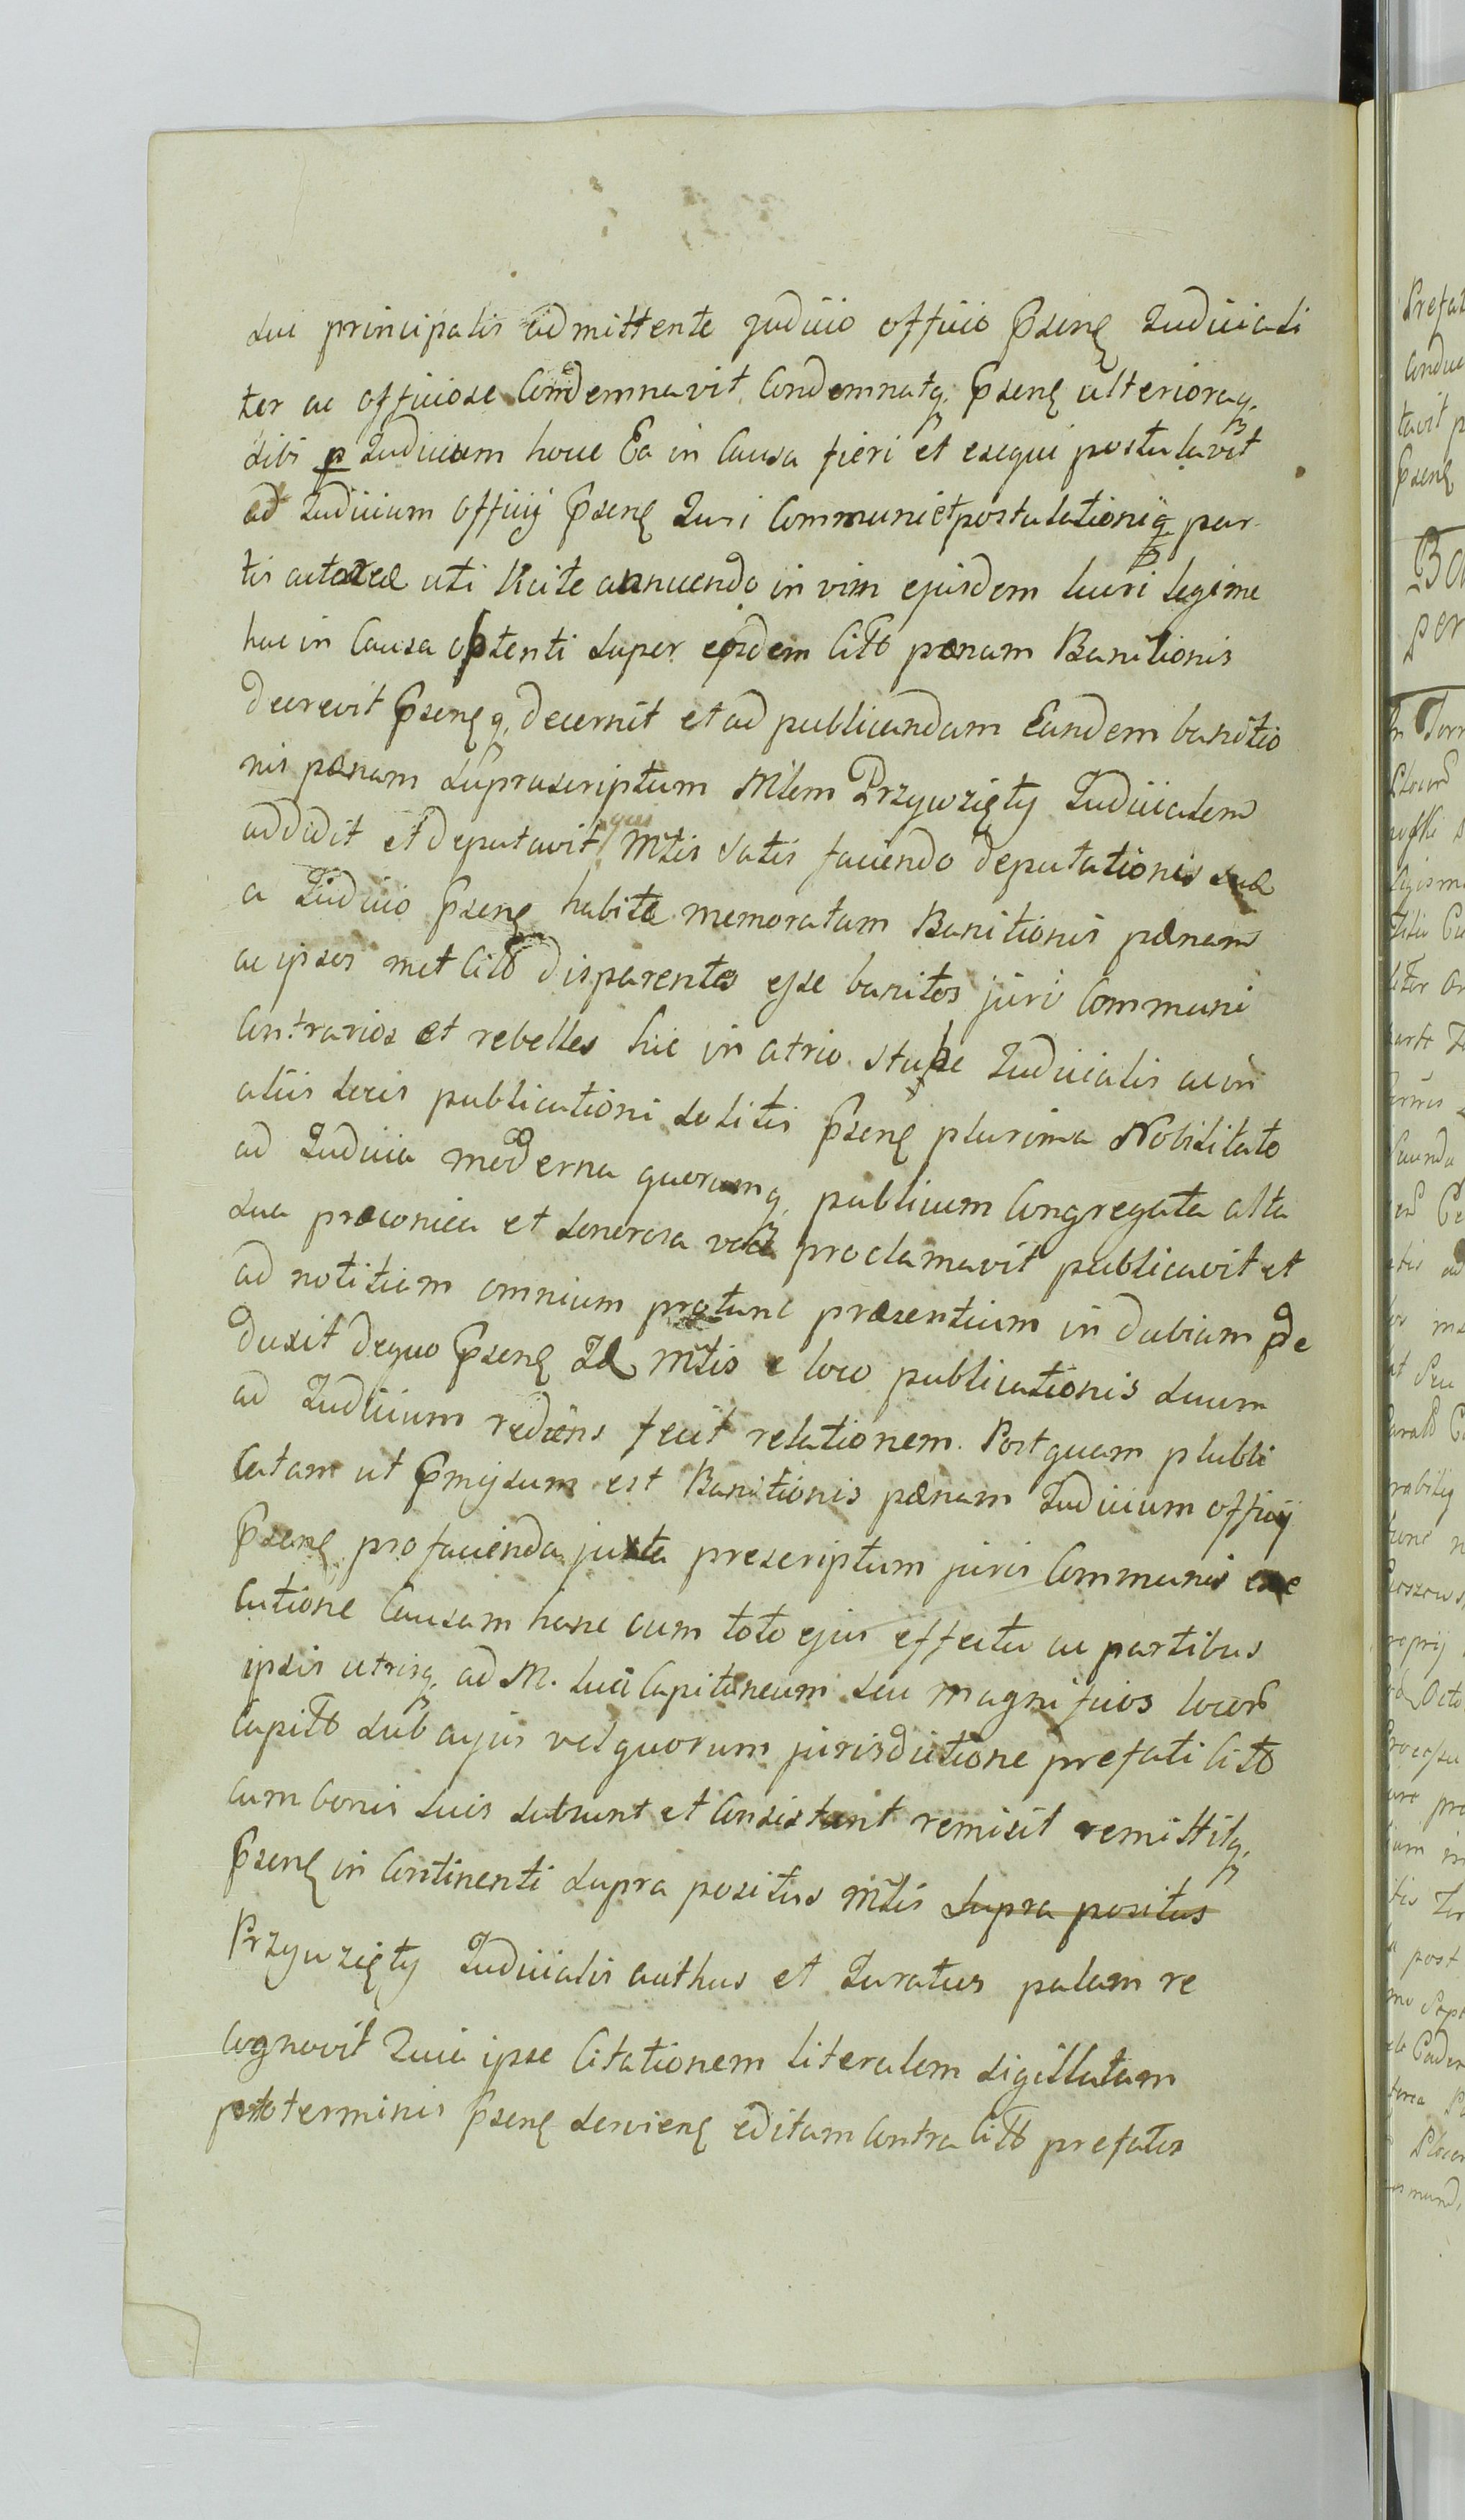 sui principalis admittente judicio officio p̄senȩ Judiciali
ter ac officiose Condemnavit Condemnatq; p̄senȩ ulterioraq;
sibi p Judicium hocce Ea in Causa fieri et exequi postulavit
ad Judicium officij p̄senȩ Juri Communi et postulationiq; par
tis actoreæ uti licite annuendo in vim ejusdem lucri legime
hac in Causa obtenti super eosdem Citt͠o pænam Banitionis
decrevit p̄senȩq; decernit et ad publicandam Eandem banitio
nis pænam suprascriptum Mlem Przywzięty Judicialem
addidit et deputavit, qui M̃tis satis faciendo deputationis suæ
a Judicio p̄senȩ habitæ memoratam Banitionis pænam
ac ipsos met Citt͠o disparentes esse banitos juri Communi
Contrarios et rebelles hic in atrio stubæ Judicialis ac in
aliis locis publicationi solitis p̄senȩ plurima Nobilitate
ad Judicia moderna quorumq; publicum Congregata alta
sua præconica et sonorosa voce proclamavit publicavit et
ad notitiam omnium protunc præsentium in dubiam p̄de
duxit dequo p̄senȩ Id M̃tis e loco publicationis suum
ad Judicium rediens fecit relationem. Postquam plubli
Catam ut p̄missum est Banitionis pænam Judicium officij
p̄senȩ pro facienda juxta prescriptum juris Communis exe
Cutione Causam hanc cum toto ejus effectu ac partibus
ipsis utrisq; ad M. luci Capitaneum seu magnificos locor̃
Capitt͠o sub cujus vel quorum jurisdictione prefati Citt͠o
cum bonis suis subsunt et Consistunt remisit remittitq;
p̄senȩ in Continenti supra positus M̃tis supra positus
Przywzięty Judicialis authus et Juratus palam re
cognovit Quia ipse Citationem literalem sigillatam
pro terminis p̄senȩ servienȩ editam Contra Citt͠o prefatos